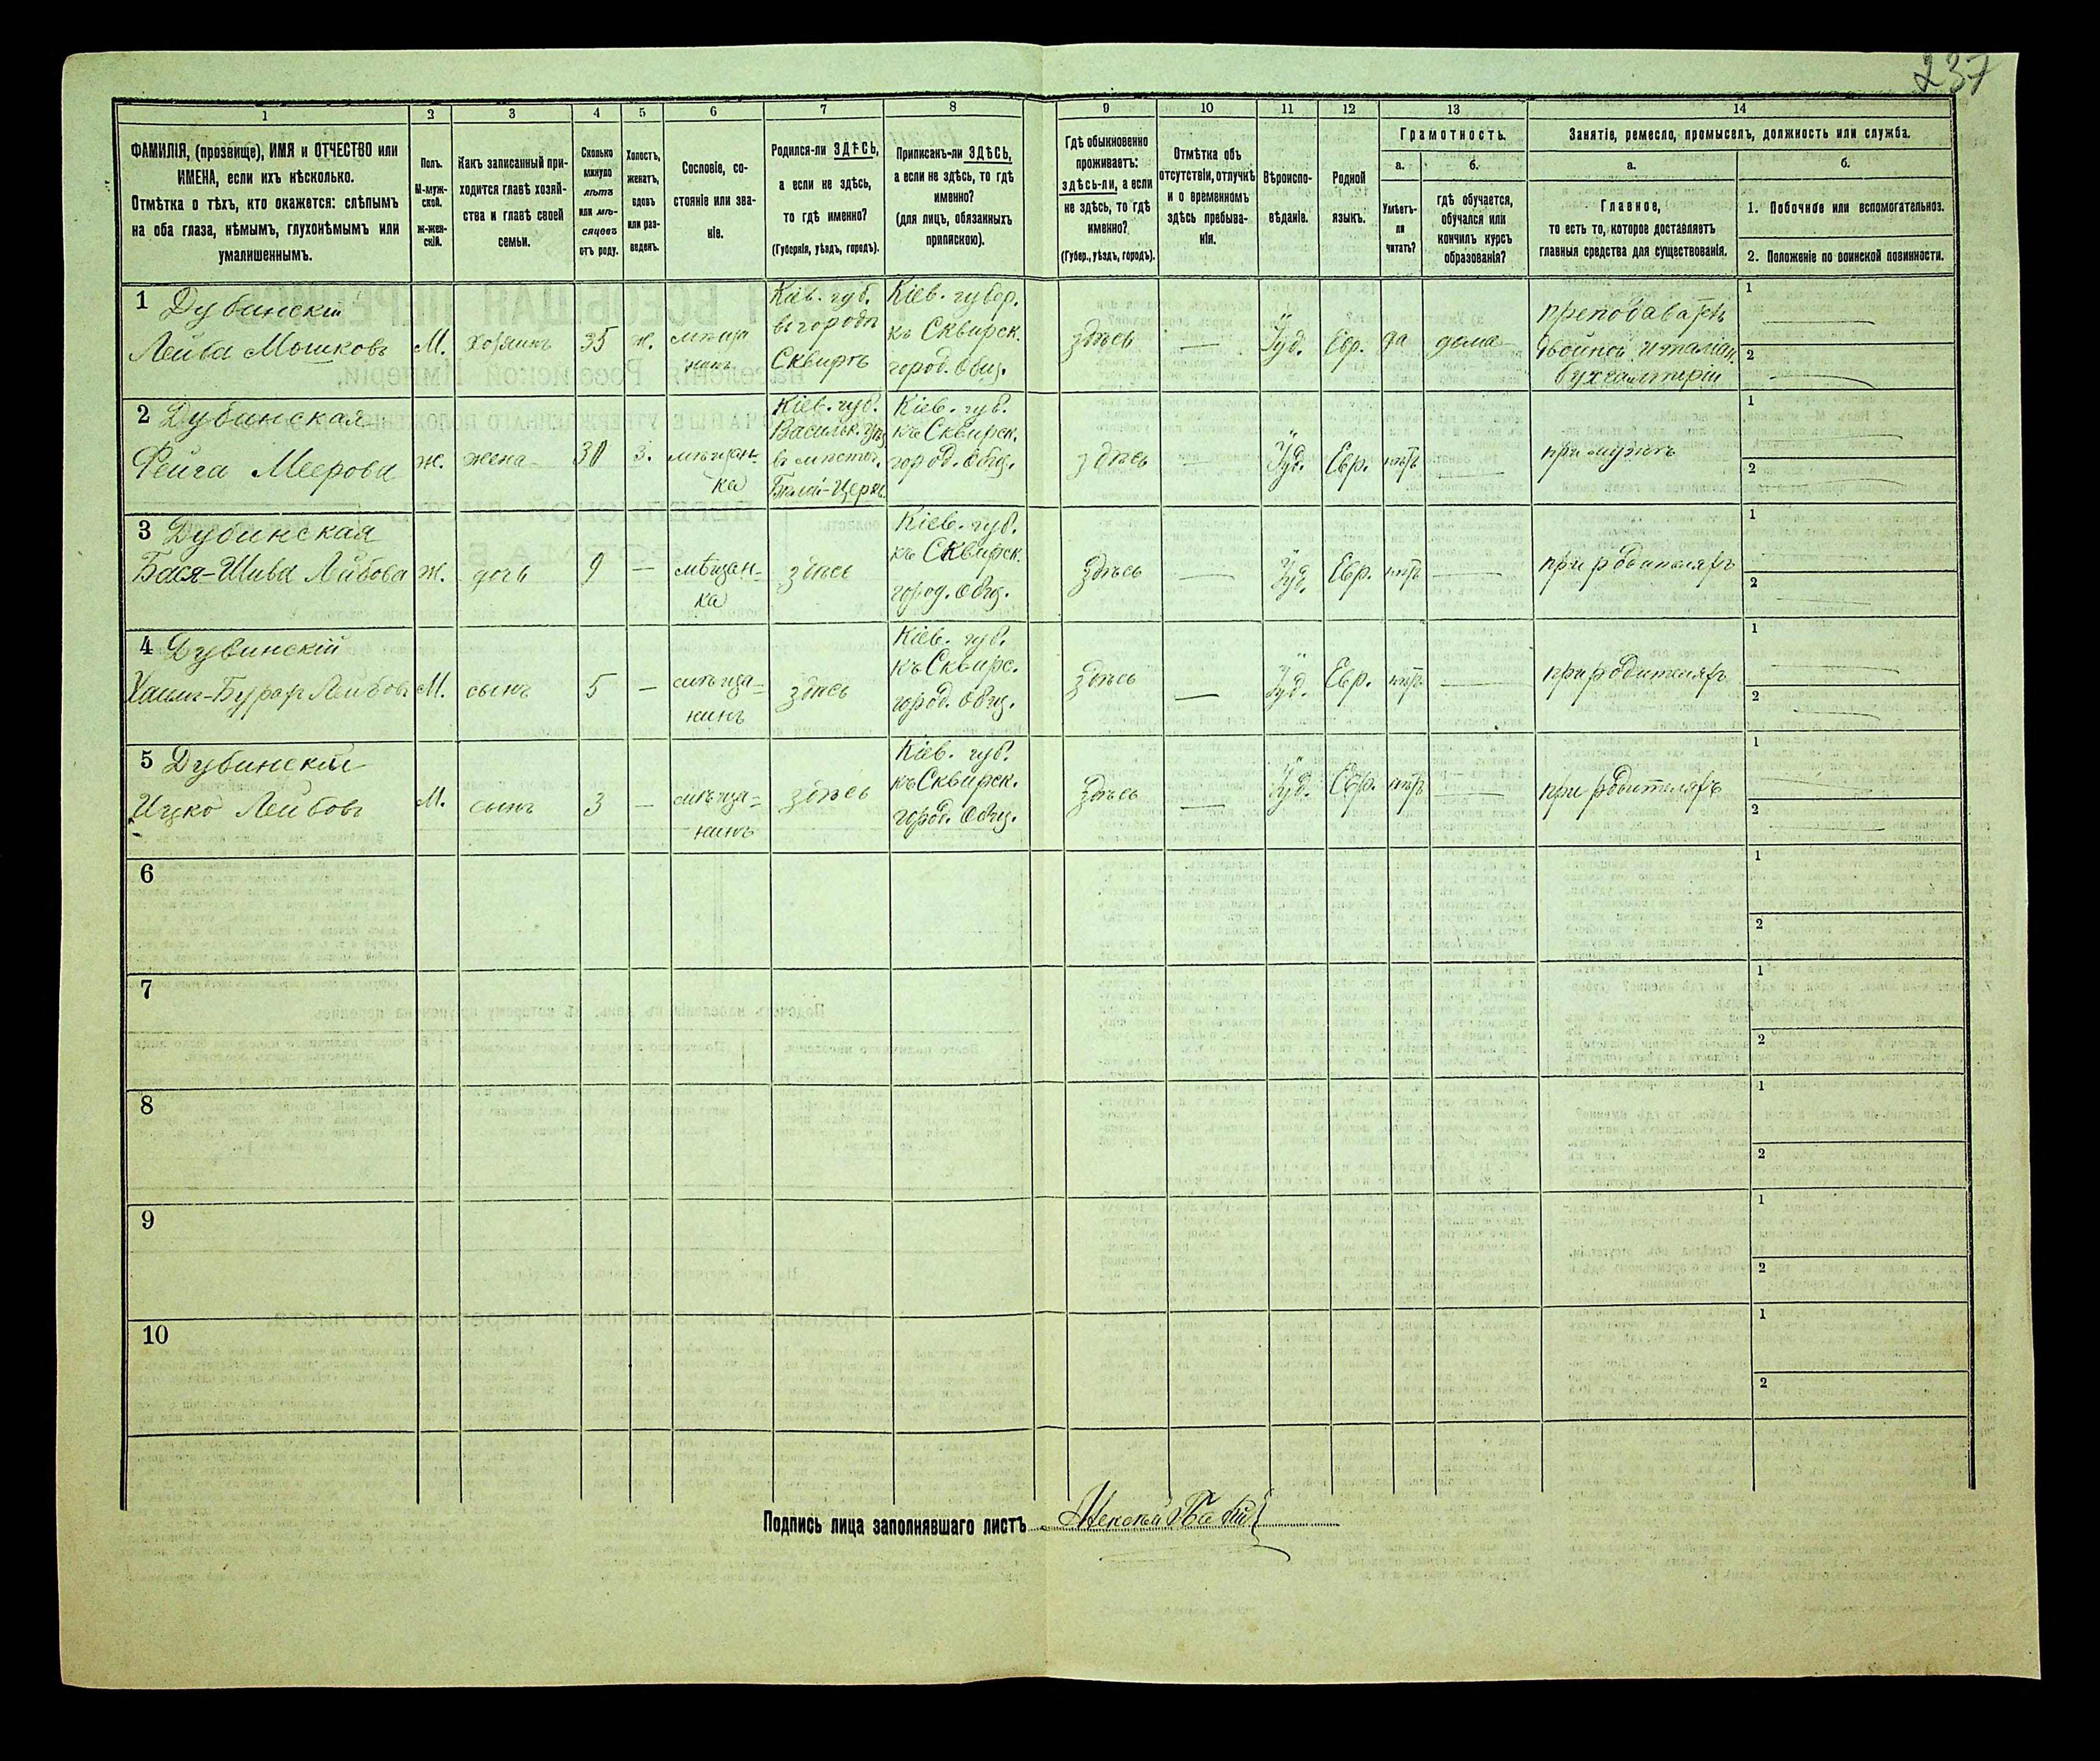 237
1 2 3 4 5 6 7 8 9 10 11 12 13 14
ФАМИЛІЯ, (прозвище), ИМЯ и ОТЧЕСТВО или
ИМЕНА, если ихъ нѣсколько.
Отмѣтка о тѣхъ, кто окажется: слѣпымъ
на оба глаза, нѣмымъ, глухонѣмымъ или
умалишеннымъ.
Полъ.
М-муж-
ской.
ж-жен-
скій.
Какъ записанный при-
ходится главѣ хозяй-
ства и главѣ своей
семьи.
Сколько
минуло
лѣтъ
или мѣ-
сяцевъ
отъ роду.
Холостъ,
женатъ,
вдовъ
или раз-
веденъ.
Сословіе, со-
стояніе или зва-
ніе.
Родился-ли ЗДѢСЬ,
а если не здѣсь,
то гдѣ именно?
(Губернія, уѣздъ, городъ).
Приписанъ-ли ЗДѢСЬ,
а если не здѣсь, то гдѣ
именно?
(для лицъ, обязанныхъ
припискою).
Гдѣ обыкновенно
проживаетъ:
здѣсь-ли, а если
не здѣсь, то гдѣ
именно?
(Губер., уѣздъ, городъ).
Отмѣтка объ
отсутствіи, отлучкѣ
и о временномъ
здѣсь пребыва-
ніи.
Вѣроиспо-
вѣданіе.
Родной
языкъ.
Грамотность.
а.
Умѣетъ-
ли
читать?
б.
гдѣ обучается,
обучался или
кончилъ курсъ
образованія?
Занятіе, ремесло, промыселъ, должность или служба.
а.
Главное,
то есть то, которое доставляетъ
главныя средства для существованія.
б.
1. Побочное или вспомогательное.
2. Положеніе по воинской повинности.
1 Дубинскій
Лейба Мошковъ
М.
хозяинъ
35
ж.
мѣща
нинъ
Кіев. губ.
въ городѣ
Сквирѣ
Кіев. губер.
къ Сквирск.
город. общ.
здѣсь
—
Іуд.
Евр.
да
дома
преподаватель
двойной италіан.
бухгалтеріи
1
2
2 Дубинская
Фейга Меерова
ж.
жена
30
з.
мѣщан-
ка
Кіев. губ.
Васильк. уѣз
въ мѣстеч.
Бѣлой-Церкв.
Кіев. губ.
къ Сквирск.
город. общ.
здѣсь
—
Іуд.
Евр.
нѣтъ
при мужѣ
1
2
3 Дубинская
Бася-Шива Лейбова
ж.
дочь
9
—
мѣщан-
ка
здѣсь
Кіев. губ.
къ Сквирск.
город. общ.
здѣсь
—
Іуд.
Евр.
нѣтъ
—
при родителяхъ
1
2
4 Дубинскій
Лейбовъ
М.
сынъ
5
—
мѣща-
нинъ
здѣсь
Кіев. губ.
къ Сквирс.
город. общ.
здѣсь
—
Іуд.
Евр.
нѣтъ
—
при родителяхъ
1
2
5 Дубинскій
Ицко Лейбовъ
М.
сынъ
3
—
мѣща-
нинъ
здѣсь
Кіев. губ.
къ Сквирск.
город. общ.
здѣсь
—
Іуд.
Евр.
нѣтъ
—
при родителяхъ
1
2
6
1
2
7
1
2
8
1
2
9
1
2
10
1
2
Подпись лица заполнявшаго листъ